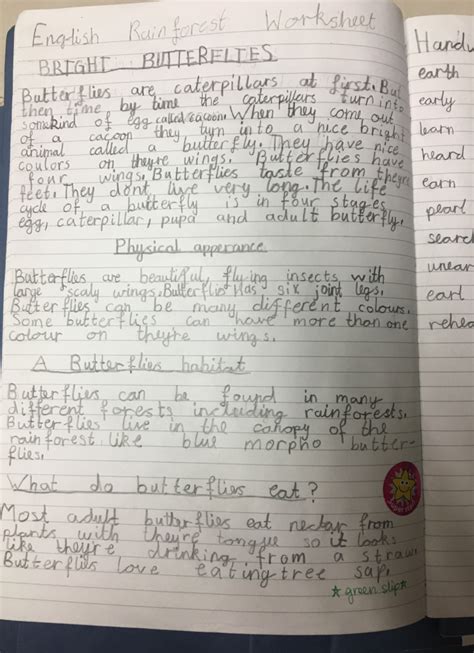 English Rainforest Worksheet
BRIGHT BUTTERFLIES
Butterflies are caterpillars at first. But
then time by time the caterpillars turn into
some kind of egg called cacoon. When they come out
of a cacoon they turn into a nice bright
animal called a butterfly. They have nice
coulors on theyre wings. Butterflies have
four wings. Butterflies taste from theyre
feet. They dont live very long. The life
cycle of a butterfly is in four stages
egg, caterpillar, pupa and adult butterfly.
Physical apperance
Butterflies are beautiful, flying insects with
large scaly wings. Butterflies has six joint legs.
Butterflies can be many different colours.
Some butterflies can have more than one
colour on theyre wings.
A Butterflies habitat
Butterflies can be found in many
different forests including rainforests.
Butterflies live in the canopy of the
rainforest like blue morpho butter-
flies.
What do butterflies eat?
Most adult butterflies eat nectar from
plants with theyre tongue so it looks
like theyre drinking from a straw.
Butterflies love eating tree sap.
green slip
Handw
earth
early
learn
heard
earn
pearl
search
unear
earl
rehea